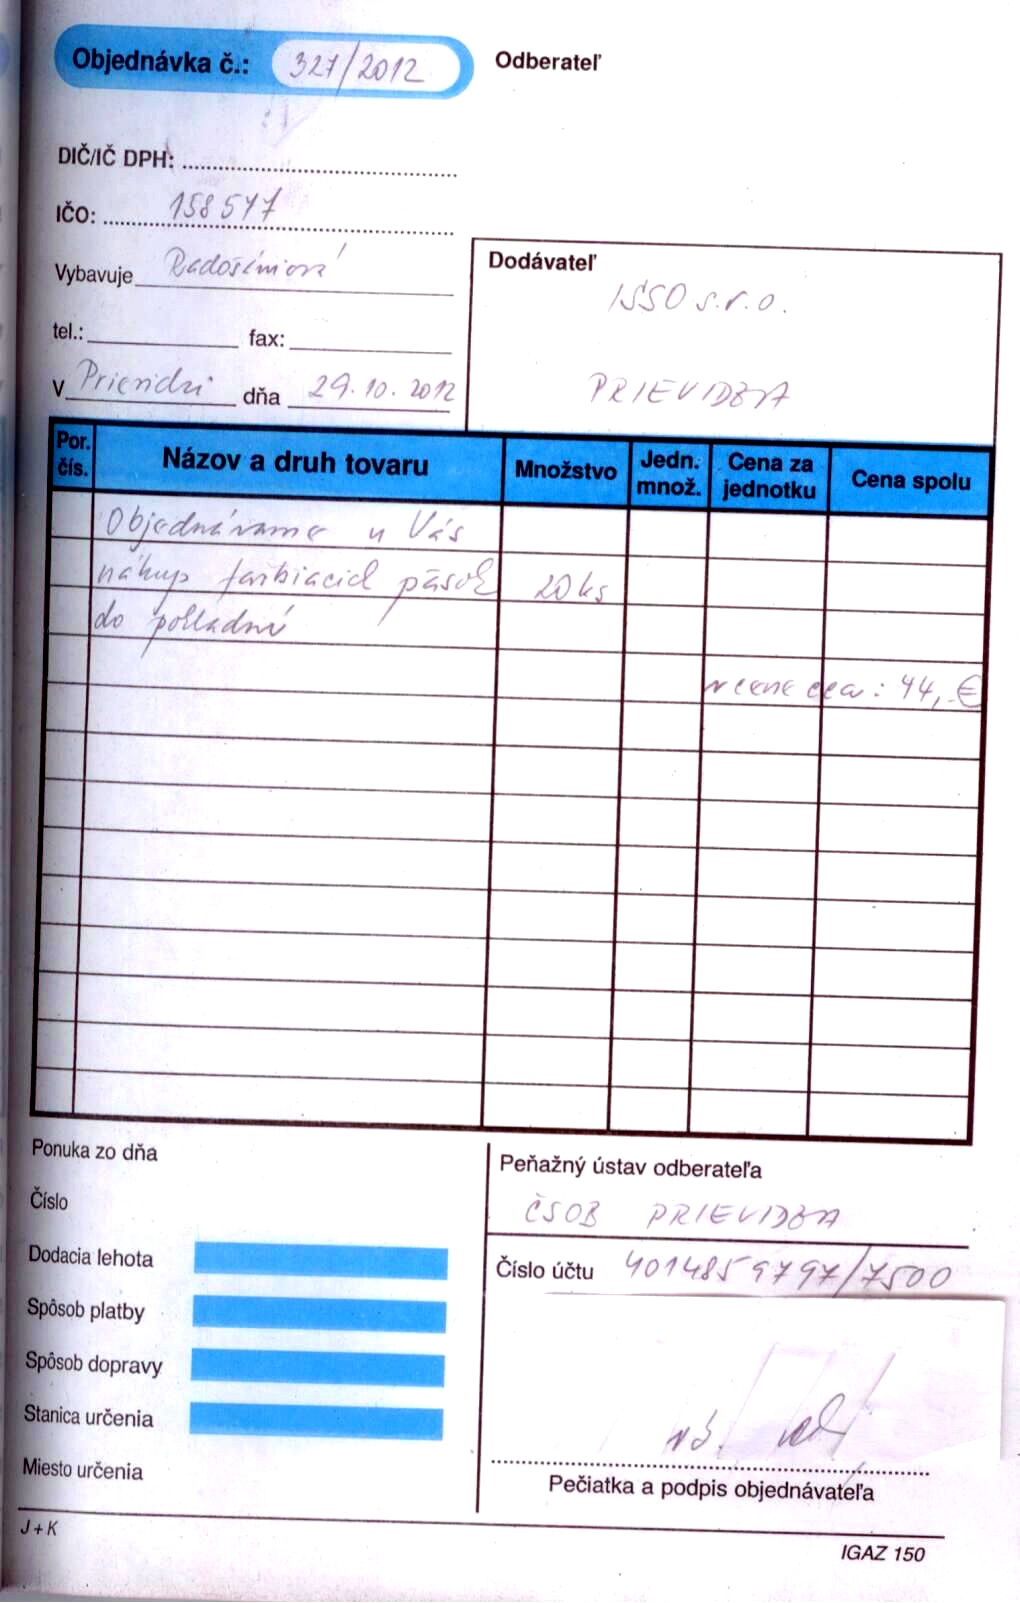 Objednávka č.: 327/2012
Odberateľ
DIČ/IČ DPH:
IČO: 158577
Vybavuje Radosiniová
tel.: fax:
V Prievidzi dňa 29.10.2012
Dodávateľ
ISSO s.r.o.
PRIEVIDZA
Por. čís. Názov a druh tovaru Množstvo Jedn. množ. Cena za jednotku Cena spolu
Objednávame u Vás
nákup farbiacich pások 20 ks
do pokladní
v cene cca: 44,-€
Ponuka zo dňa
Číslo
Dodacia lehota
Spôsob platby
Spôsob dopravy
Stanica určenia
Miesto určenia
Peňažný ústav odberateľa
ČSOB PRIEVIDZA
Číslo účtu 4014859797/7500
Pečiatka a podpis objednávateľa
J+K
IGAZ 150